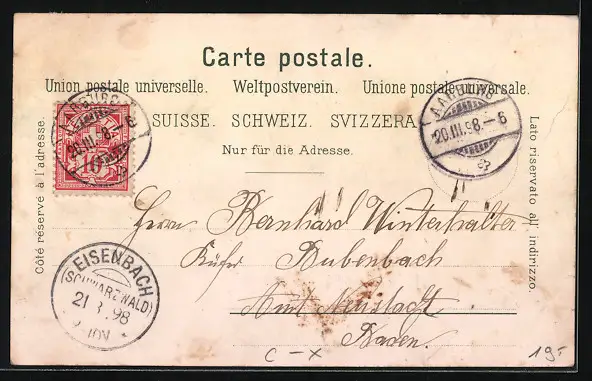 Carte postale.
Union postale universelle. Weltpostverein. Unione postale universale.
SUISSE. SCHWEIZ. SVIZZERA
Nur für die Adresse.
Côté réservé à l'adresse.
Lato riservato all' indirizzo.
AARBURG
20.III.98.-6
10
AARBURG
20.III.98.-6
Herrn Bernhard Winterhalter
Küfer Bubenbach
Amt Neustadt
Baden.
EISENBACH
(SCHWARZWALD)
21 3 98
C - X
19.-